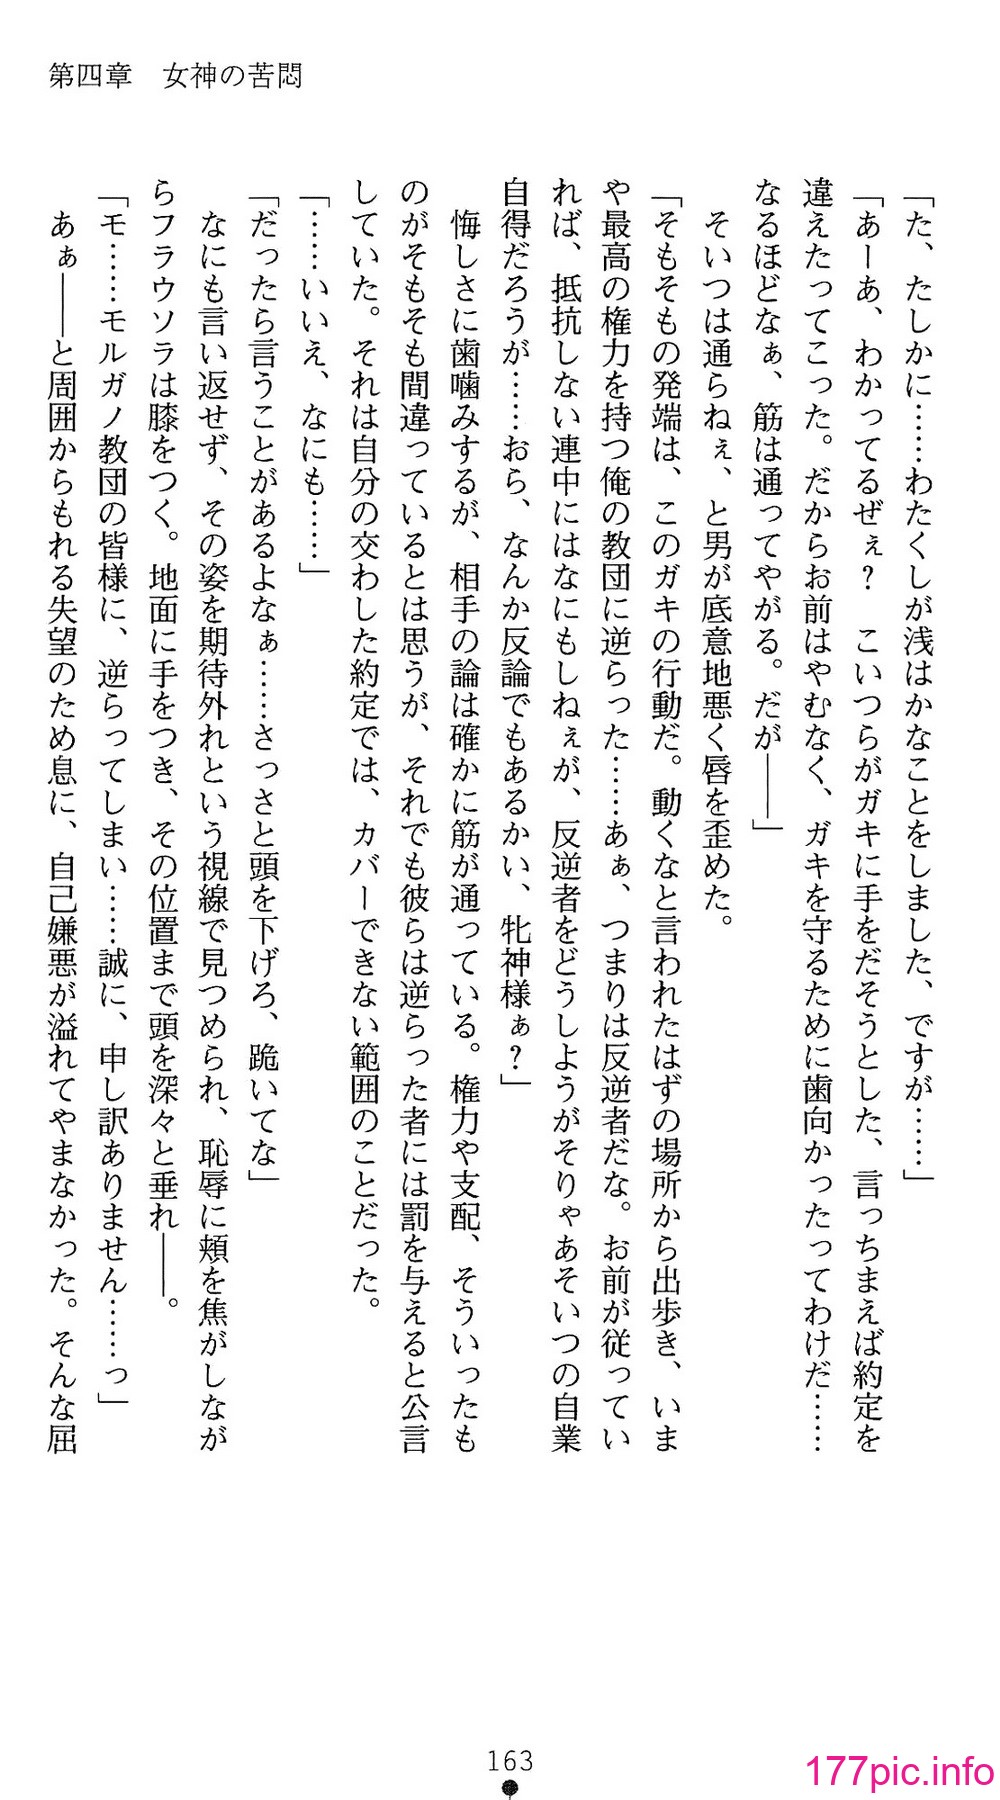 第四章　女神の苦悶
「た、たしかに……わたくしが浅はかなことをしました、ですが……」
「あーあ、わかってるぜぇ？　こいつらがガキに手をだそうとした、言っちまえば約定を
違えたってこった。だからお前はやむなく、ガキを守るために歯向かったってわけだ……
なるほどなぁ、筋は通ってやがる。だが――」
　そいつは通らねぇ、と男が底意地悪く唇を歪めた。
「そもそもの発端は、このガキの行動だ。動くなと言われたはずの場所から出歩き、いま
や最高の権力を持つ俺の教団に逆らった……あぁ、つまりは反逆者だな。お前が従ってい
れば、抵抗しない連中にはなにもしねぇが、反逆者をどうしようがそりゃあそいつの自業
自得だろうが……おら、なんか反論でもあるかい、牝神様ぁ？」
　悔しさに歯噛みするが、相手の論は確かに筋が通っている。権力や支配、そういったも
のがそもそも間違っているとは思うが、それでも彼らは逆らった者には罰を与えると公言
していた。それは自分の交わした約定では、カバーできない範囲のことだった。
「……いいえ、なにも……」
「だったら言うことがあるよなぁ……さっさと頭を下げろ、跪いてな」
　なにも言い返せず、その姿を期待外れという視線で見つめられ、恥辱に頬を焦がしなが
らフラウソラは膝をつく。地面に手をつき、その位置まで頭を深々と垂れ――。
「モ……モルガノ教団の皆様に、逆らってしまい……誠に、申し訳ありません……っ」
　あぁ――と周囲からもれる失望のため息に、自己嫌悪が溢れてやまなかった。そんな屈
163
177pic.info